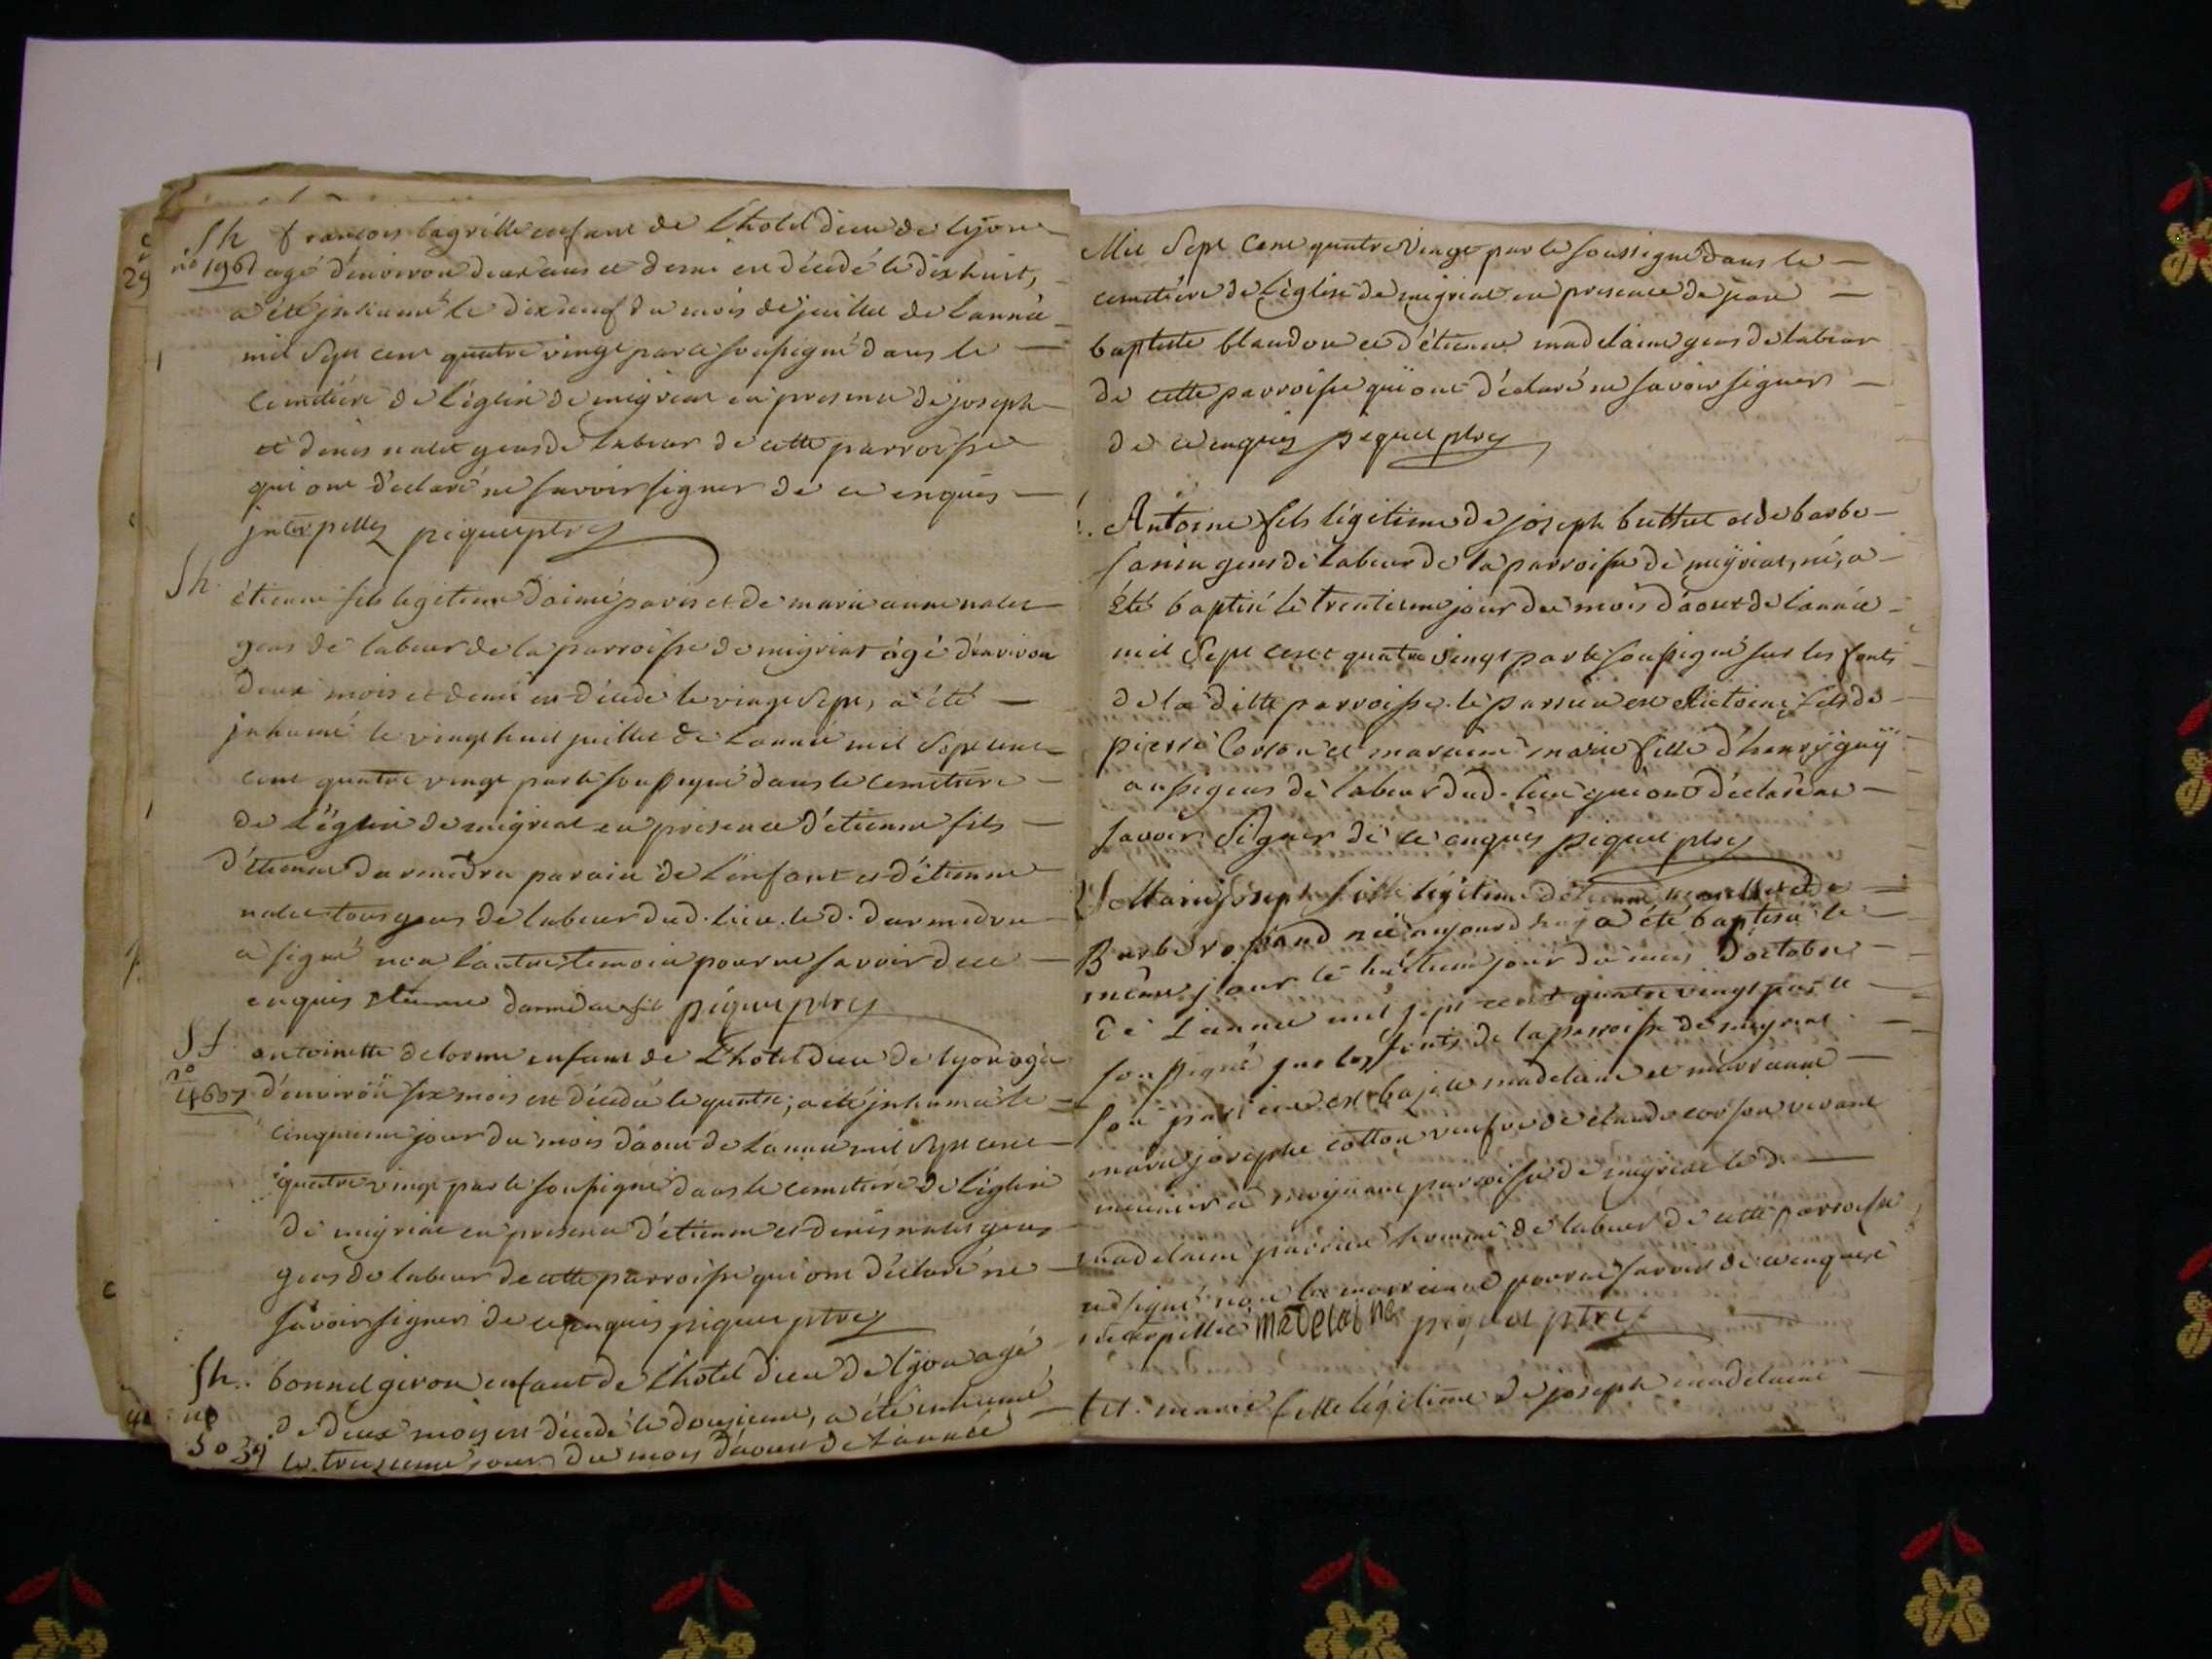 Sh françois lagrille enfant de Lhotel dieu de lyon
no 1961 agé d'environ deux ans et demi est décédé le dix huit,
29
a été inhumé le dix neuf du mois de juillet de l'année
mil sept cent quatre vingt par le soussigné dans le
cimetière de l'église de meyriat en presence de joseph
et denis nalet gens de labeur de cette parroisse
qui ont declaré ne savoir signer de ce enquis
interpellez piquet ptre
Sh. étienne fils legitime d'aimé paris et de marie anne nalet
gens de labeur de la parroisse de meyriat agé d'environ
deux mois et demi est décédé le vingt sept, a été
inhumé le vingt huit juillet de l'année mil sept cent
cent quatre vingt par le soussigné dans le cemetiere
de l'église de meyriat en presence d'étienne fils
d'étienne parain de l'enfant et d'étienne
nalet tous gens de labeur dud. lieu. le d.
a signé non l'autre temoin pour ne savoir de ce
enquis étienne piquet ptre
St antoinette delorme enfant de Lhotel dieu de lyon agée
no
4607 d'environ six mois est décédée le quatre, a été inhumée le
cinquieme jour du mois d'aout de l'année mil sept cent
quatre vingt par le soussigné dans le cemetiere de l'église
de meyriat en presence d'étienne et denis nalet gens
gens de labeur de cette parroisse qui ont déclaré ne
savoir signer de ce enquis piquet ptre
Sh. bonnel giron enfant de Lhotel dieu de lyon agé
no de deux mois est décédé le douzieme, a été inhumé
5039 le treizieme jour du mois d'aout de l'année
Mil Sept Cent quatre vingt par le soussigné dans le
cemetière de l'église de meyriat en presence de jean
baptiste blandon et d'étienne madelaine gens de labeur
de cette parroisse qui ont déclaré ne savoir signer
de ce enquis piquet ptre
Antoine fils légitime de joseph buttet et de barbe
janin gens de labeur de la parroisse de meyriat, né, a
été baptisé le trentieme jour du mois d'aout de l'année
mil sept cent quatre vingt par le soussigné sur les fonts
de la ditte parroisse. le parrein est Antoine fils de
pierre Corson et maraine marie fille d'henry guy
aussi gens de labeur dud. lieu qui ont déclaré ne
savoir signer de ce enquis piquet ptre
Marie Joseph fille légitime d'étienne et de
Barbe née aujourd'huy a été baptisée le
même jour le huitieme jour du mois d'octobre
de l'année mil sept cent quatre vingt par le
soussigné sur les fonts de la parroisse de meyriat
son parrein est madelaine et marrenne
marie josephe cotton veufve de claude corson vivant
meunier a parroisse de meyriat le d.
madelaine parrein homme de labeur de cette parroisse
a signé non la marrenne pour ne savoir de ce enquise
interpellée madelaine piquet ptre
marie fille légitime de joseph madelaine